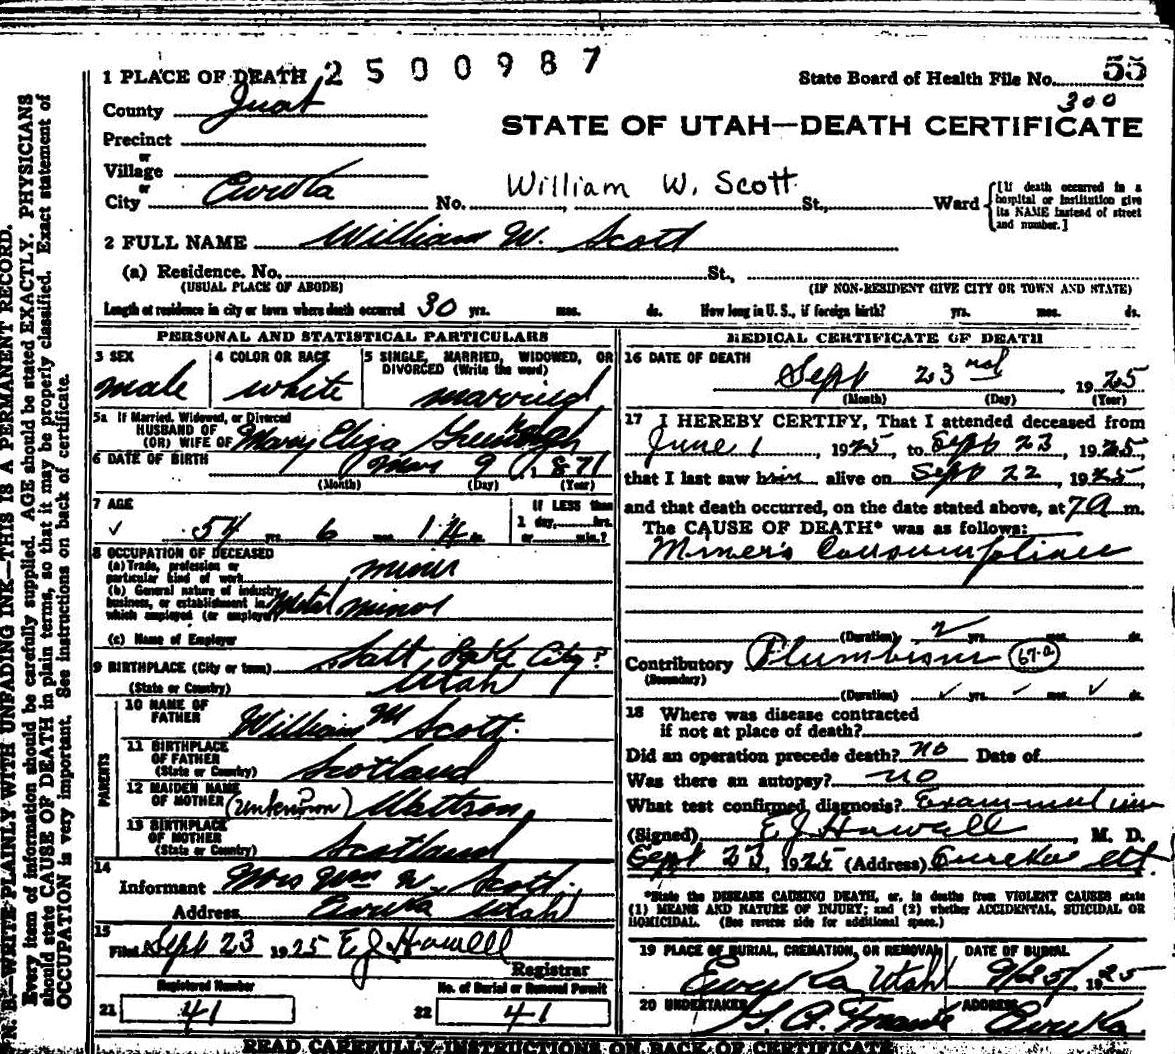 2500987
1 PLACE OF DEATH
State Board of Health File No. 55
300
County Juab
STATE OF UTAH—DEATH CERTIFICATE
Precinct
or
Village
or
City Eureka No. William W. Scott St., Ward
[If death occurred in a hospital or institution give its NAME instead of street and number.]
2 FULL NAME William W. Scott
(a) Residence. No. St.,
(USUAL PLACE OF ABODE) (IF NON-RESIDENT GIVE CITY OR TOWN AND STATE)
Length of residence in city or town where death occurred 30 yrs. mos. ds. How long in U. S., if foreign birth? yrs. mos. ds.
PERSONAL AND STATISTICAL PARTICULARS
3 SEX
male
4 COLOR OR RACE
white
5 SINGLE, MARRIED, WIDOWED, OR DIVORCED (Write the word)
married
5a If Married, Widowed, or Divorced
HUSBAND OF
(OR) WIFE OF Mary Eliza
6 DATE OF BIRTH Mar 9 1871
(Month) (Day) (Year)
7 AGE
54 yrs. 6 mos. 14 ds.
If LESS than
1 day, hrs.
or min.?
8 OCCUPATION OF DECEASED
(a) Trade, profession or
particular kind of work miner
(b) General nature of industry,
business, or establishment in
which employed (or employer) Metal mines
(c) Name of Employer
9 BIRTHPLACE (City or town) Salt Lake City?
(State or Country) Utah
PARENTS
10 NAME OF
FATHER William M Scott.
11 BIRTHPLACE
OF FATHER
(State or Country) Scotland
12 MAIDEN NAME
OF MOTHER (unknown) Wattson
13 BIRTHPLACE
OF MOTHER
(State or Country) Scotland
14
Informant Mrs Wm W. Scott.
Address Eureka Utah
15
Filed Sept 23 1925 E J Howell
Registrar
Registered Number
21 41
No. of Burial or Removal Permit
22 41
MEDICAL CERTIFICATE OF DEATH
16 DATE OF DEATH
Sept 23rd 1925
(Month) (Day) (Year)
17 I HEREBY CERTIFY, That I attended deceased from
June 1, 1925, to Sept 23, 1925,
that I last saw him alive on Sept 22, 1925,
and that death occurred, on the date stated above, at 7 a m.
The CAUSE OF DEATH* was as follows:
Miner's Consumption
(Duration) 2 yrs. mos. ds.
Contributory Plumbism 67-a
(Secondary)
(Duration) yrs. mos. ds.
18 Where was disease contracted
if not at place of death?
Did an operation precede death? no Date of
Was there an autopsy? no
What test confirmed diagnosis? Examination
(Signed) E J Howell, M. D.
Sept 23, 1925 (Address) Eureka Ut.
*State the DISEASE CAUSING DEATH, or, in deaths from VIOLENT CAUSES state
(1) MEANS AND NATURE OF INJURY; and (2) whether ACCIDENTAL, SUICIDAL OR
HOMICIDAL. (See reverse side for additional space.)
19 PLACE OF BURIAL, CREMATION, OR REMOVAL
Eureka Utah
DATE OF BURIAL
9/25/1925
20 UNDERTAKER
ADDRESS
Eureka
READ CAREFULLY INSTRUCTIONS ON BACK OF CERTIFICATE
N. B.—WRITE PLAINLY WITH UNFADING INK—THIS IS A PERMANENT RECORD.
Every item of information should be carefully supplied. AGE should be stated EXACTLY. PHYSICIANS
should state CAUSE OF DEATH in plain terms, so that it may be properly classified. Exact statement of
OCCUPATION is very important. See instructions on back of certificate.